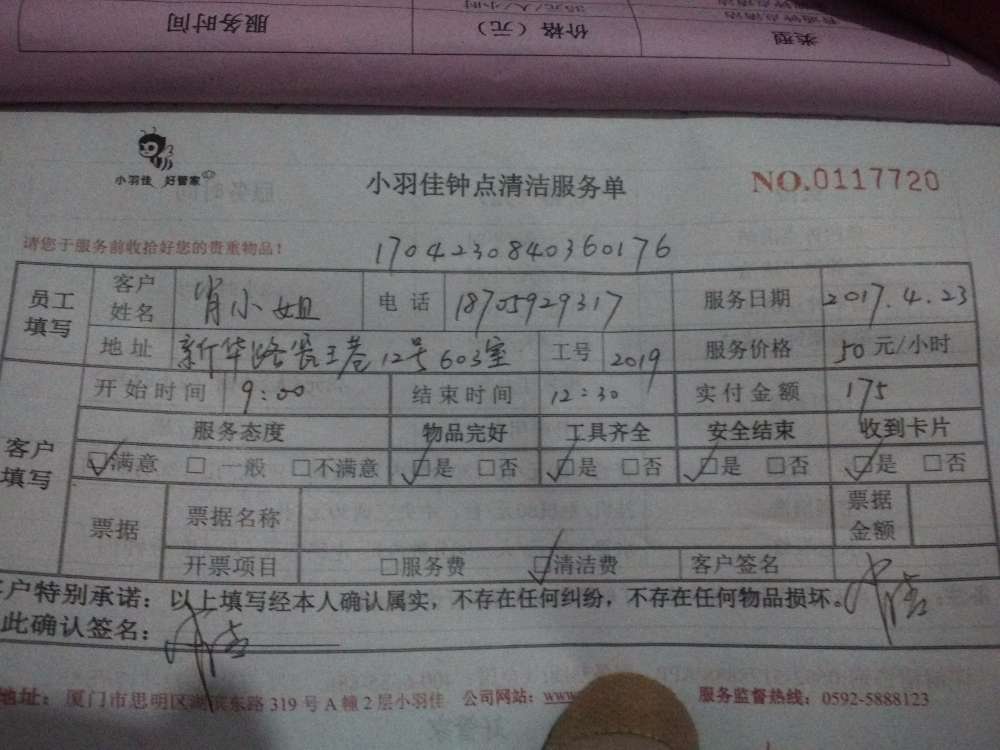 服务时间 价格（元） 类型
小羽佳 好管家
小羽佳钟点清洁服务单
NO.0117720
请您于服务前收拾好您的贵重物品！
1704230840360176
员工填写 客户姓名 肖小姐 电话 18705929317 服务日期 2017.4.23
地址 新华路 王巷12号603室 工号 2019 服务价格 50 元/小时
客户填写 开始时间 9:00 结束时间 12:30 实付金额 175
服务态度 物品完好 工具齐全 安全结束 收到卡片
☑满意 □一般 □不满意 ☑是 □否 ☑是 □否 ☑是 □否 ☑是 □否
票据 票据名称 票据金额
开票项目 □服务费 ☑清洁费 客户签名
客户特别承诺：以上填写经本人确认属实，不存在任何纠纷，不存在任何物品损坏。
此确认签名：
地址：厦门市思明区湖滨东路319号A幢2层小羽佳 公司网站：www 服务监督热线：0592-5888123